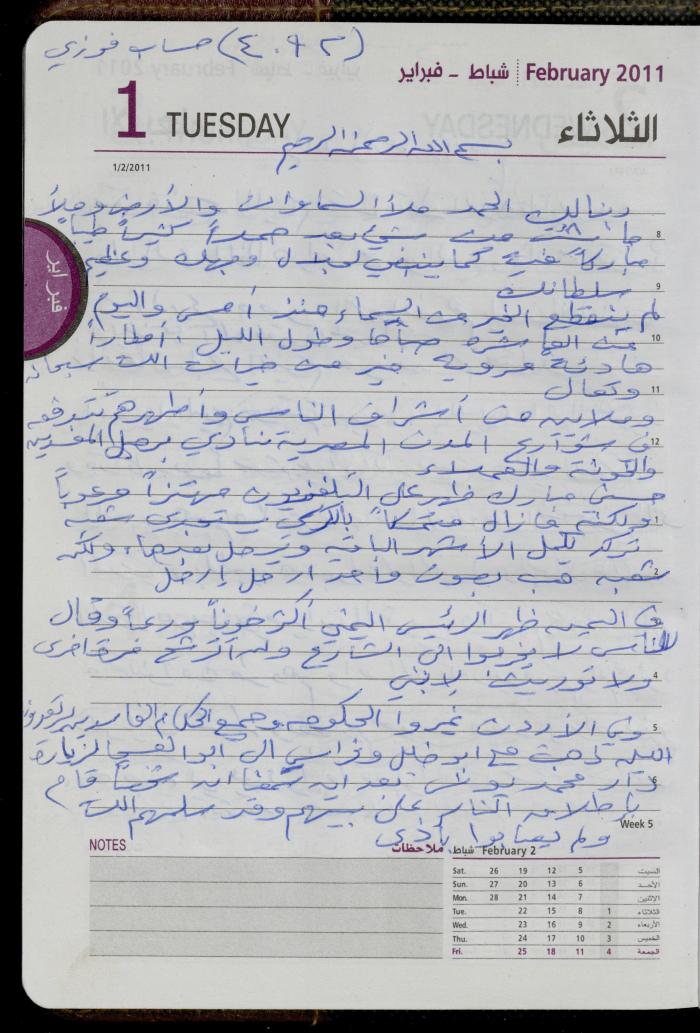 (٤٠٩٢) حساب فوزي
شباط - فبراير February 2011
1 TUESDAY الثلاثاء
بسم الله الرحمن الرحيم
1/2/2011
ربنا لك الحمد ملأ السماوات والأرض وملأ
ما شئت من شيء بعد حمداً كثيراً طيباً
8
مباركاً فيه كما ينبغي لجلال وجهك وعظيم
فبراير
سلطانك
9
لم ينقطع الخير من السماء منذ أمس واليوم
من العاشرة صباحاً وطول الليل، أمطاراً
10
هادئة مروية خير من خيرات الله سبحانه
وتعالى
11
وملايين من أشراف الناس وأطهرهم تتدفق
في شوارع المدن المصرية تنادي برحيل المفسدين
12
والخونة والعملاء
حسني مبارك ظهر على التلفزيون مهتزاً مرعوباً
ولكنه ما زال متمسكاً بالكرسي يستجدي شعبه
1
تركه يكمل الأشهر الباقية ويرحل بعدها، ولكن
شعبه هب بصوت واحد ارحل ارحل
2
في اليمن ظهر الرئيس اليمني أكثر خوفاً ورعباً وقال
للناس لا تخرجوا الى الشارع ولن أترشح مرة اخرى
ولا توريث لابني
4
وفي الأردن غيروا الحكومة وجميع الحكام
5
الليلة ذهبت مع ابو خليل وفراس الى ابو الفسجا لزيارة
دار محمد يونس بعد ان سمعنا ان شخصاً قام
6
بإطلاق النار على بيتهم وقد سلمهم الله
ولم يصابوا بأذى
Week 5
NOTES ملاحظات
February 2 شباط
Sat. 26 19 12 5 السبت
Sun. 27 20 13 6 الأحد
Mon. 28 21 14 7 الاثنين
Tue. 22 15 8 1 الثلاثاء
Wed. 23 16 9 2 الأربعاء
Thu. 24 17 10 3 الخميس
Fri. 25 18 11 4 الجمعة